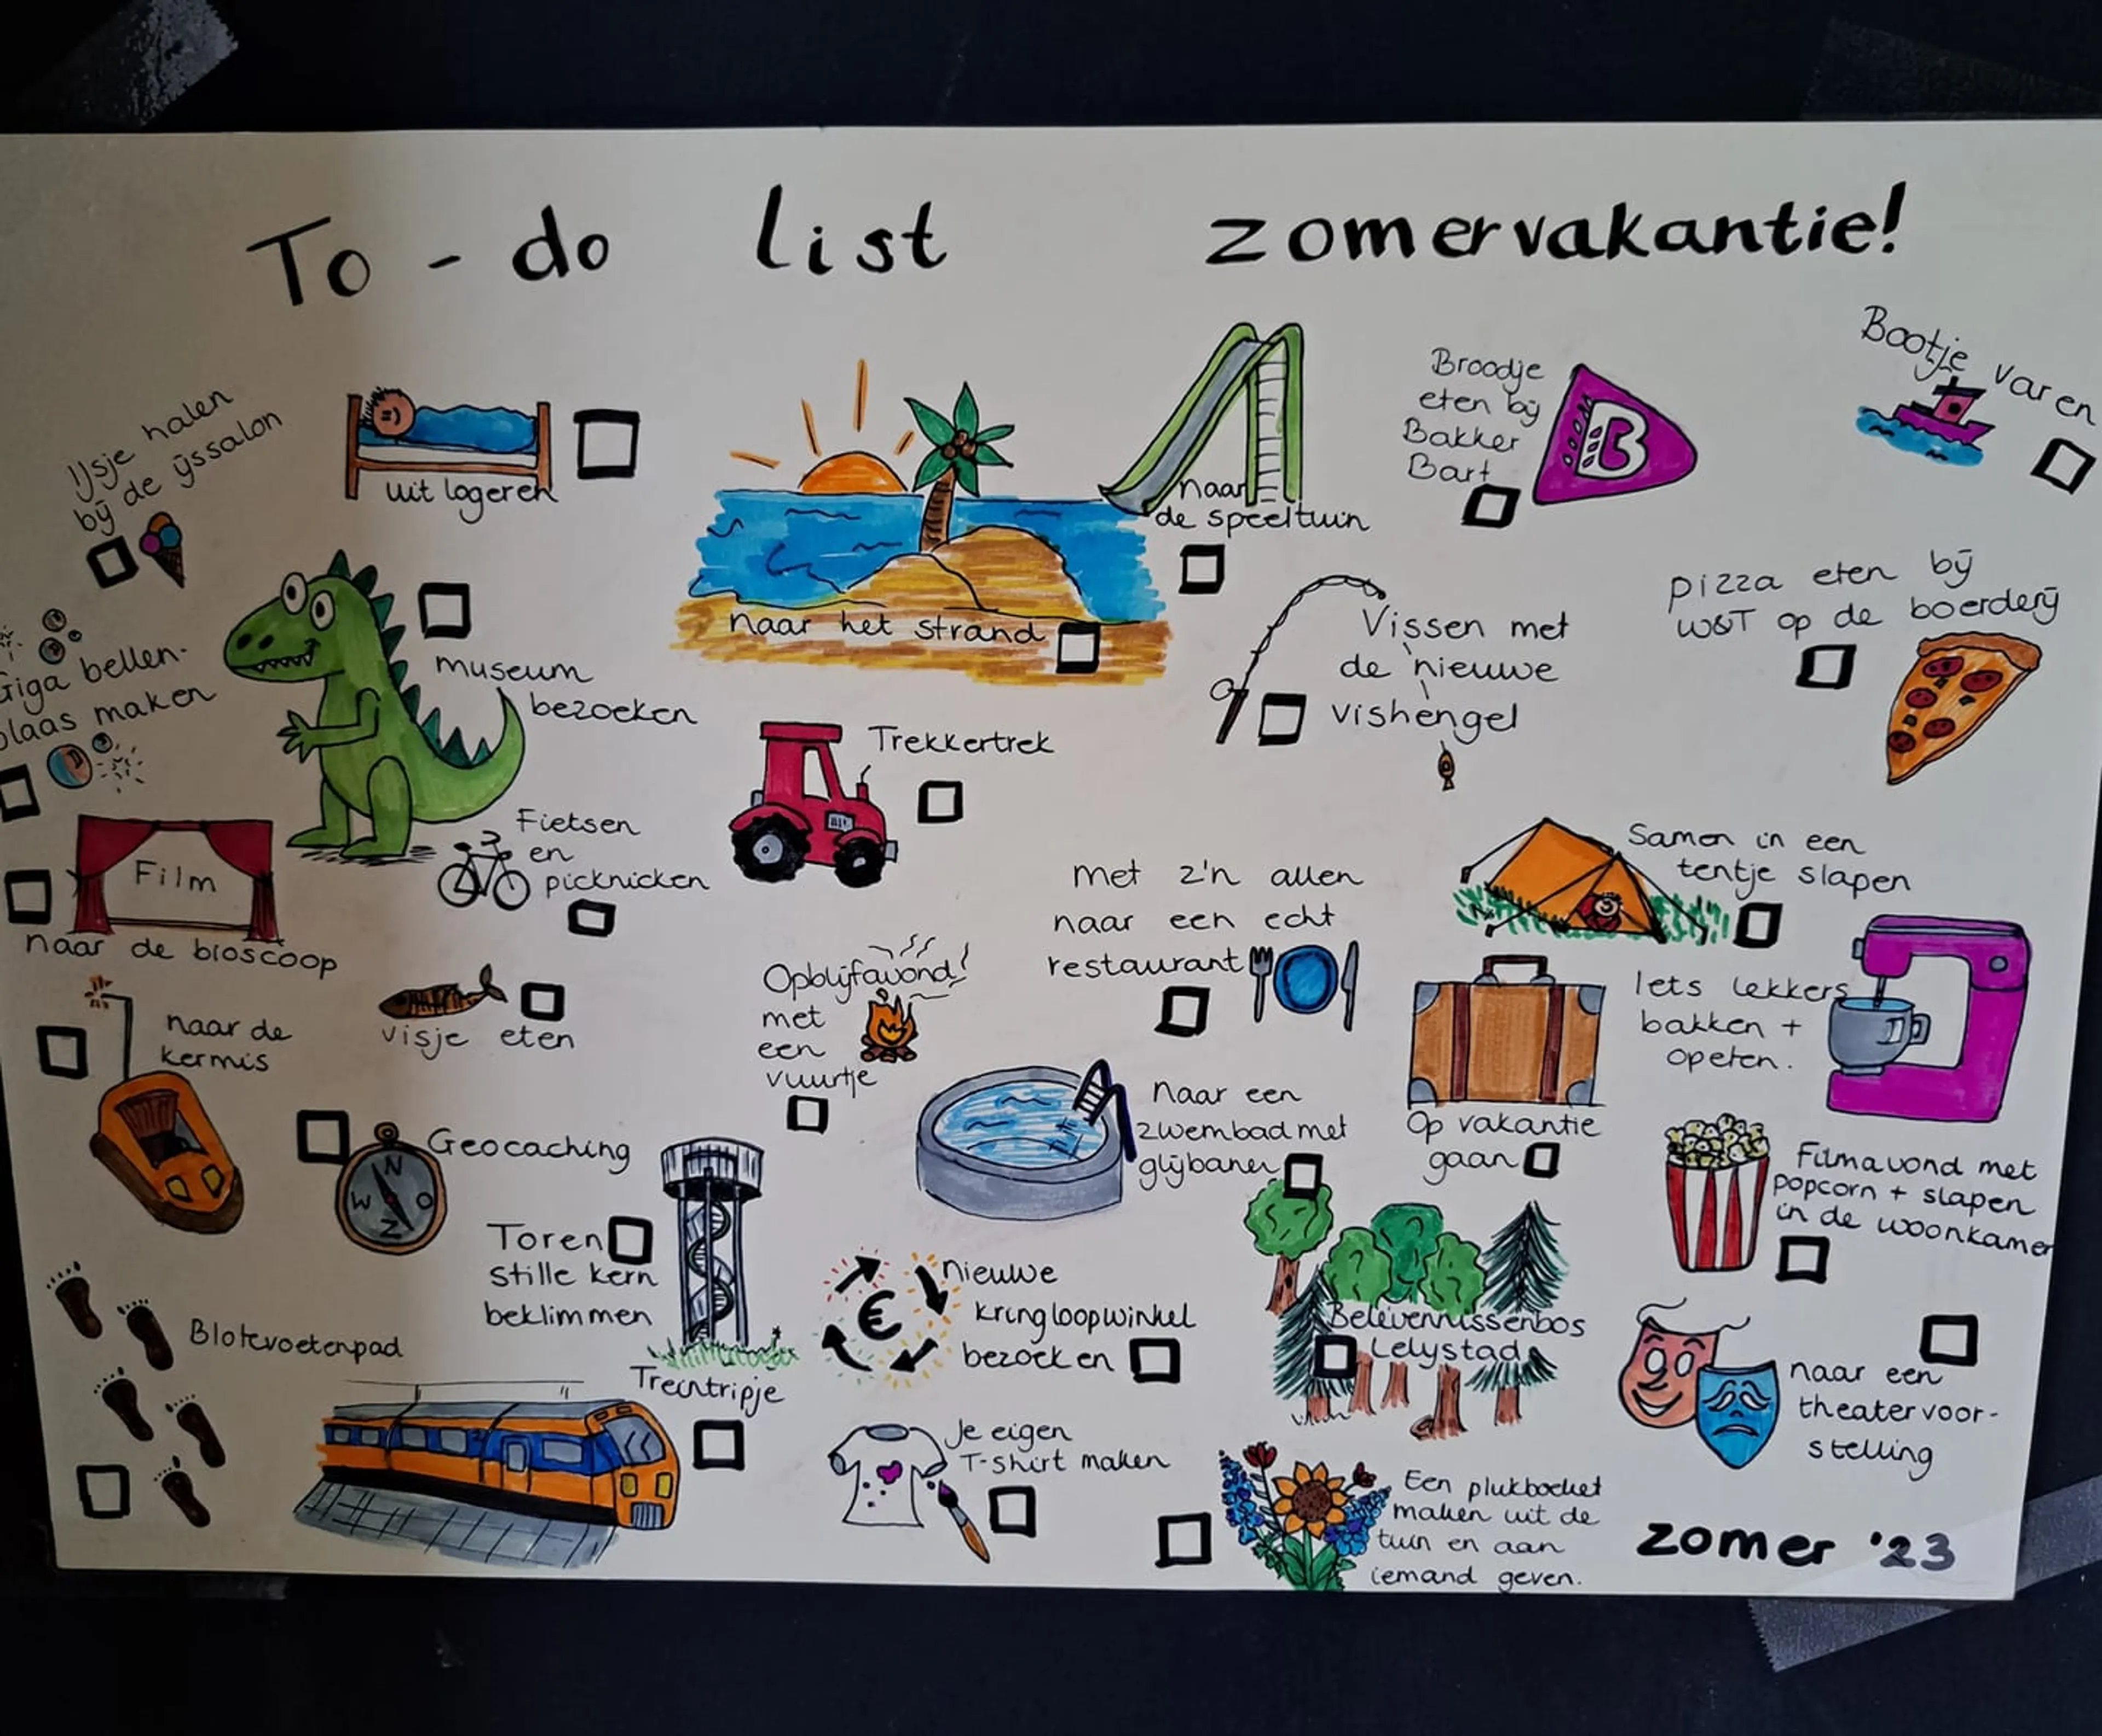 To-do list zomervakantie!
IJsje halen
bij de ijssalon
uit logeren
naar
de speeltuin
Broodje
eten bij
Bakker
Bart
B
Bootje varen
Giga bellen-
blaas maken
museum
bezoeken
naar het strand
Vissen met
de nieuwe
vishengel
pizza eten bij
W&T op de boerderij
Trekkertrek
Film
naar de bioscoop
Fietsen
en
picknicken
met z'n allen
naar een echt
restaurant
Samen in een
tentje slapen
naar de
kermis
visje eten
Opblijfavond!
met
een
vuurtje
Iets lekkers
bakken +
opeten.
Geocaching
N
W O
Z
Naar een
zwembad met
glijbanen
Op vakantie
gaan
Filmavond met
popcorn + slapen
in de woonkamer
Toren
stille kern
beklimmen
Blotevoetenpad
€
Nieuwe
kringloopwinkel
bezoeken
Belevenissenbos
Lelystad
naar een
theatervoor-
stelling
Treintripje
Je eigen
T-shirt maken
Een plukboeket
maken uit de
tuin en aan
iemand geven.
zomer '23